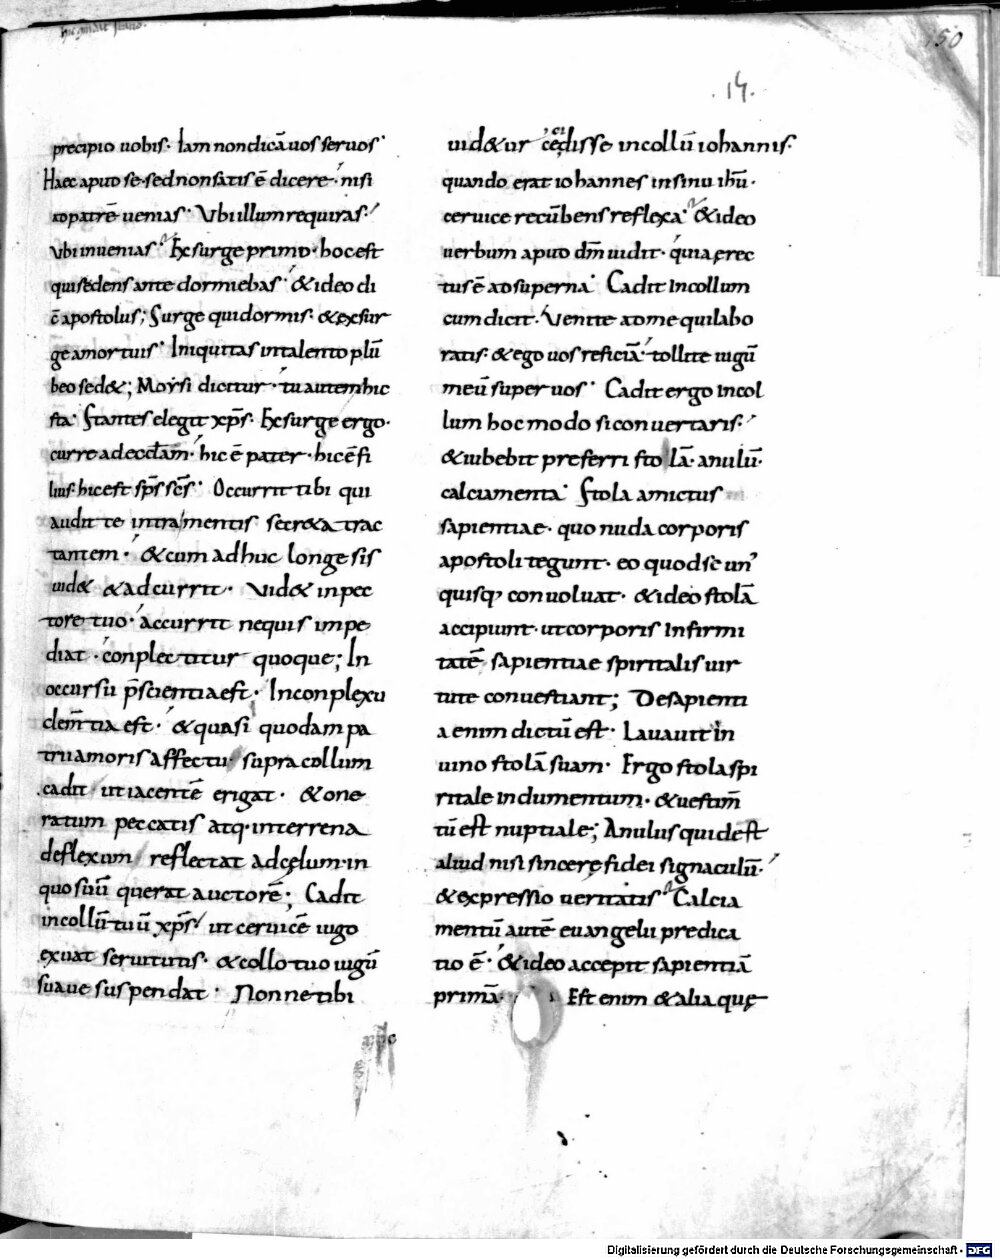 150
.14.
precipio uobis· Iam non dicā uos seruos·
Haec apud se· sed non satis ē dicere· nisi
ad patrē uenias· Vbi illum requiras·
vbi inuenias· Exsurge primo· hoc est
qui sedens ante dormiebas· & ideo di
c̄ apostolus; Surge qui dormis· & exsur
ge a mortuis· Iniquitas in talento plū
beo sed&; Moysi dicitur· tu autem hic
sta· Stantes elegit xp̄s· Exsurge ergo·
curre ad ecclām· hic ē pater· hic ē fi
lius· hic est sp̄s sc̄s· Occurrit tibi qui
audit te intra mentis secr&a trac
tantem· & cum adhuc longe sis
uid& & adcurrit· Vid& in pec
tore tuo· accurrit nequis impe
diat· conplectitur quoque; In
occursu p̄scientia est· In conplexu
clem̄tia est· & quasi quodam pa
trii amoris affectu· supra collum
cadit ut iacentē erigat· & one
ratum peccatis atq· in terrena
deflexum reflectat ad cęlum· in
quo suū querat auctorē; Cadit
in collū tuū xp̄s ut ceruicē iugo
exuat seruitutis· & collo tuo iugū
suaue suspendat· Nonne tibi
uid&ur cecidisse in collū iohannis·
quando erat iohannes in sinu ih̄u·
ceruice recūbens reflexa· & ideo
uerbum apud dm̄ uidit· quia erec
tus ē ad superna· Cadit in collum
cum dicit· Venite ad me qui labo
ratis· & ego uos reficiā· tollite iugū
meū super uos· Cadit ergo in col
lum hoc modo si conuertaris·
& iubebit preferri stolā· anulū·
calciamenta· Stola amictus
sapientiae· quo nuda corporis
apostoli tegunt· eo quod se un'
quisq; conuoluat· & ideo stolā
accipiunt· ut corporis infirmi
tatē sapientiae spiritalis uir
tute conuestiant; De sapienti
a enim dictū est· Lauauit in
uino stolā suam· Ergo stola spi
ritale indumentum· & uestim̄
tū est nuptiale; Anulus quid est
aliud nisi sincerę fidei signaculū·
& expressio ueritatis· Calcia
mentū autē euangelii predica
tio ē· & ideo accepit sapientiā
primā· Est enim & alia quę
Digitalisierung gefördert durch die Deutsche Forschungsgemeinschaft - DFG